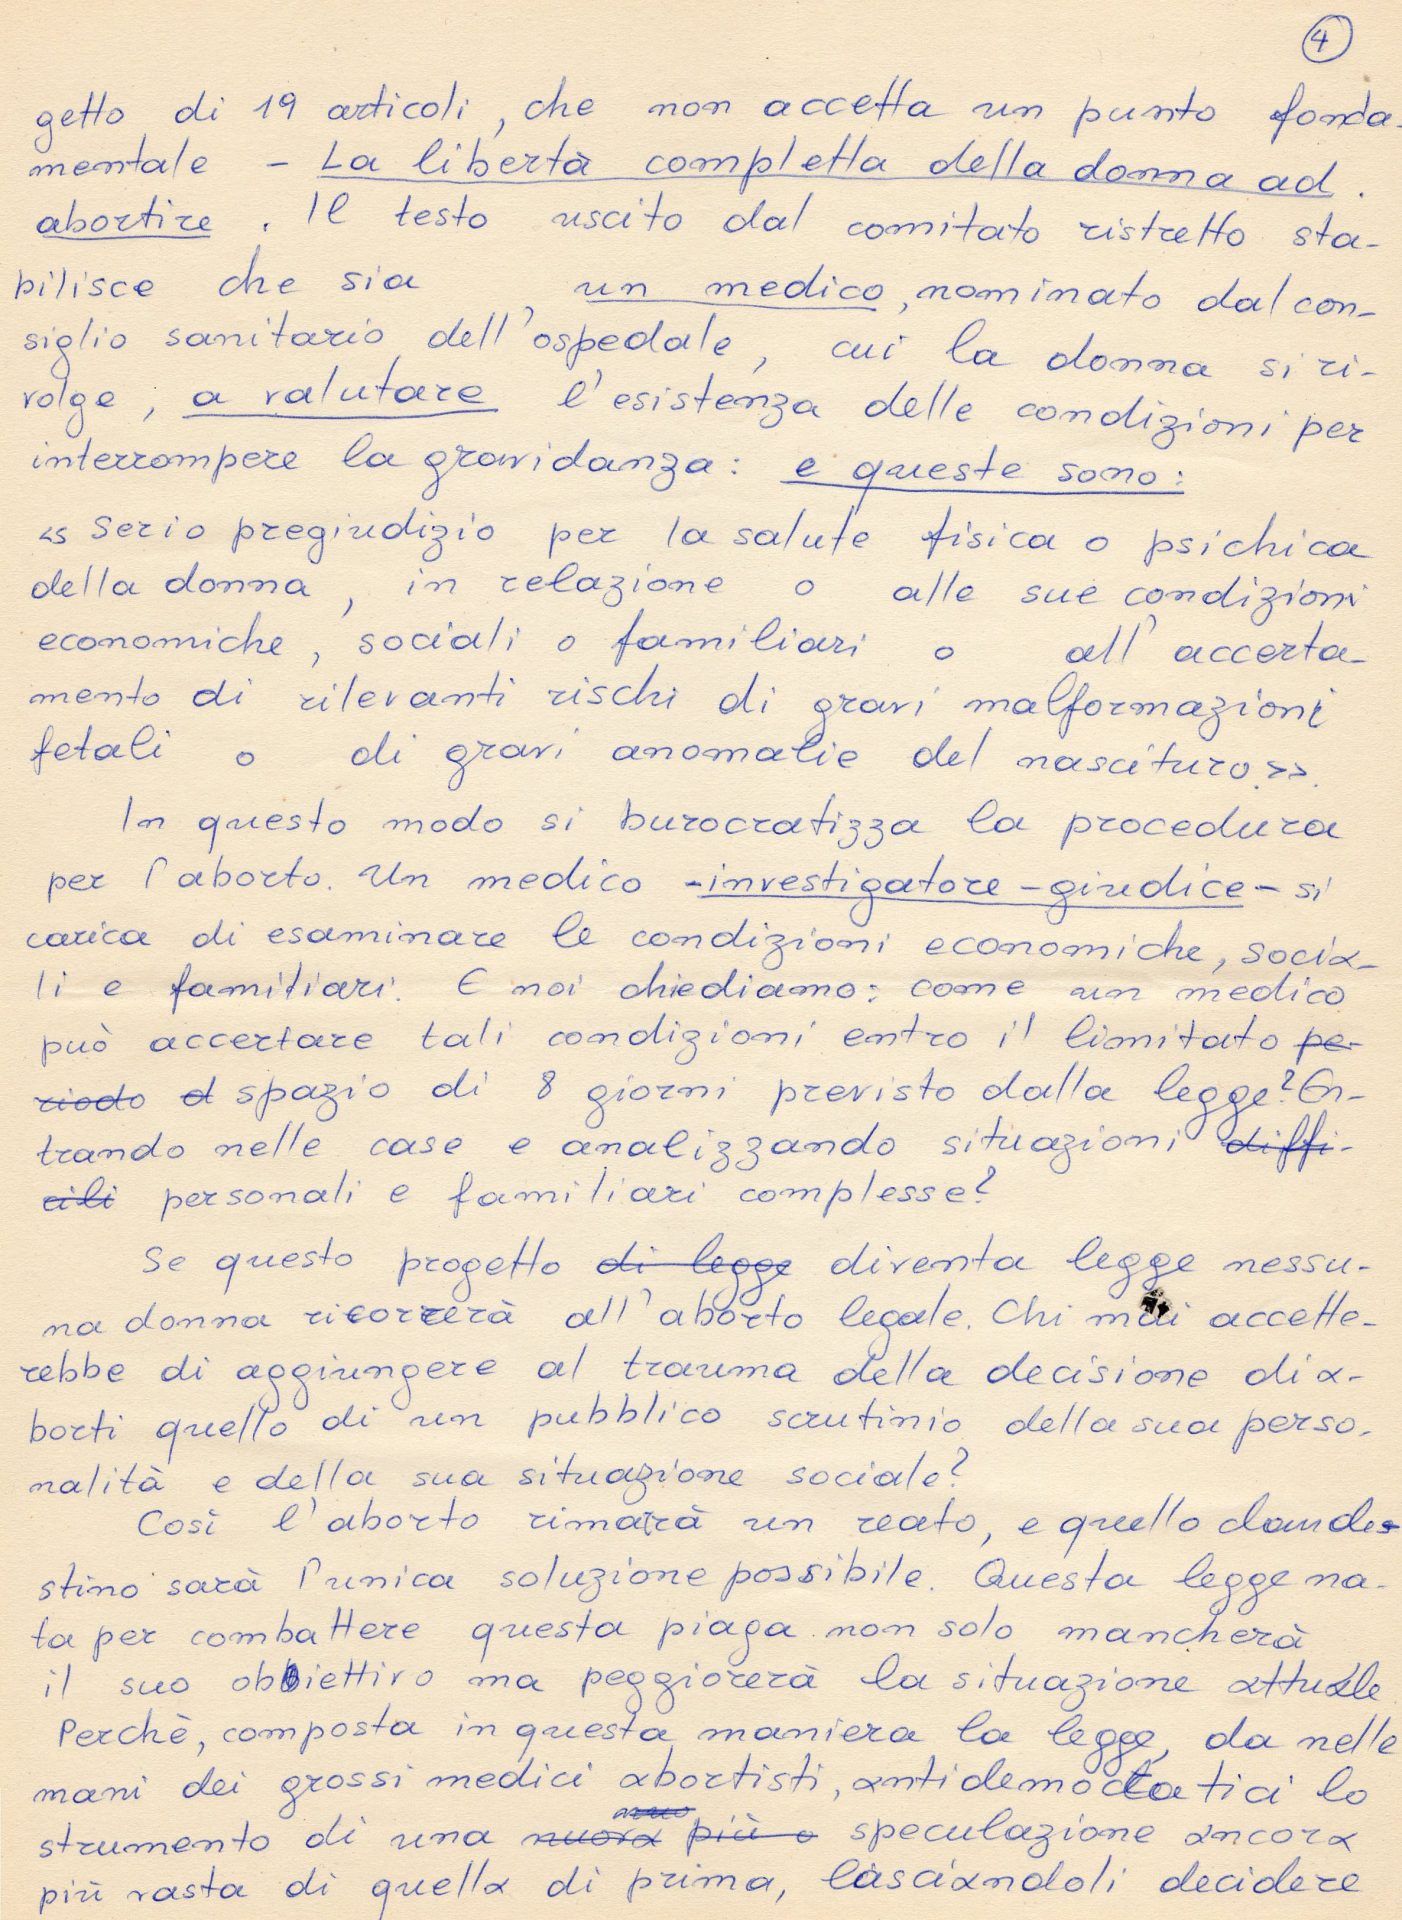 4
getto di 19 articoli, che non accetta un punto fonda-
mentale - La libertà completta della donna ad.
abortire. Il testo uscito dal comitato ristretto sta-
bilisce che sia , un medico, nominato dal con-
siglio sanitario dell'ospedale, cui la donna si ri-
volge, a valutare l'esistenza delle condizioni per
interrompere la gravidanza: e queste sono:
<< Serio pregiudizio per la salute fisica o psichica
della donna, in relazione o alle sue condizioni
economiche, sociali o familiari o all'accerta-
mento di rilevanti rischi di gravi malformazioni
fetali o di gravi anomalie del nascituro.>>.
In questo modo si burocratizza la procedura
per l'aborto. Un medico -investigatore-giudice- si
carica di esaminare le condizioni economiche, socia-
li e familiari. E noi chiediamo: come un medico
può accertare tali condizioni entro il limitato pe-
riodo d spazio di 8 giorni previsto dalla legge? En-
trando nelle case e analizzando situazioni diffi-
cili personali e familiari complesse?
Se questo progetto di legge diventa legge nessu-
na donna ricorrerà all'aborto legale. Chi mai accette-
rebbe di aggiungere al trauma della decisione di a-
borti quello di un pubblico scrutinio della sua perso-
nalità e della sua situazione sociale?
Così l'aborto rimarrà un reato, e quello clande-
stino sarà l'unica soluzione possibile. Questa legge na-
ta per combattere questa piaga non solo mancherà
il suo obbiettivo ma peggiorerà la situazione attuale
Perchè, composta in questa maniera la legge, da nelle
mani dei grossi medici abortisti, antidemocratici lo
strumento di una nuova più o speculazione ancora
più vasta di quella di prima, lasciandoli decidere